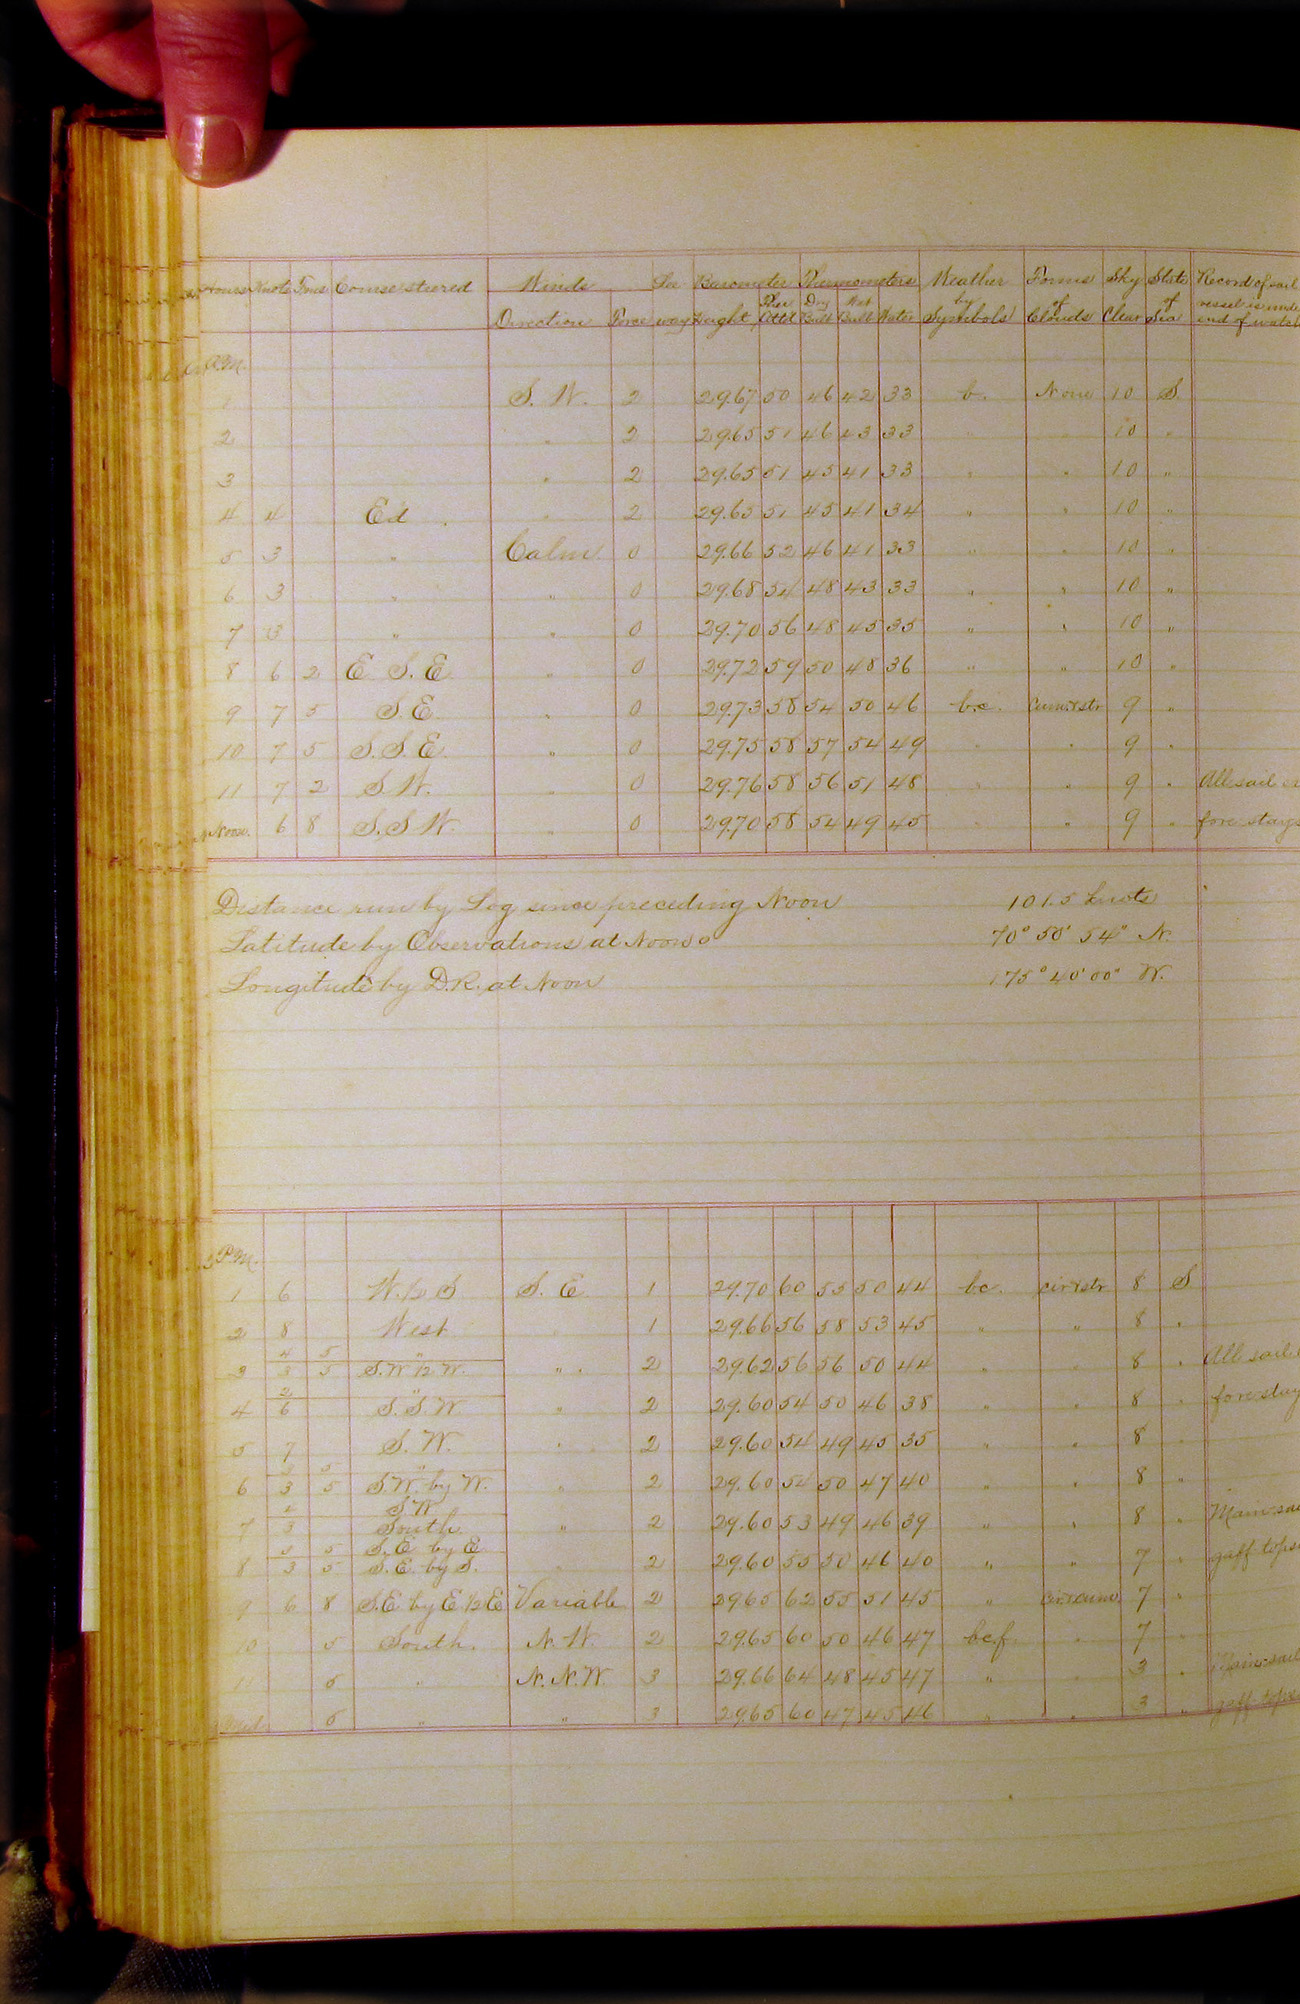 Hours Knots Fms Course steered Winds Lee Barometer Thermometers Weather Forms Sky State Record of sail
Direction Force way Height Ther Att'd Dry Bulb Wet Bulb Water by Symbols of Clouds Clear of Sea vessel is under end of watch
A.M.
1 S. W. 2 29.67 50 46 42 33 b. None 10 S.
2 " 2 29.65 51 46 43 33 " " 10 "
3 " 2 29.65 51 45 41 33 " " 10 "
4 4 Ed " 2 29.65 51 45 41 34 " " 10 "
5 3 " Calm 0 29.66 52 46 41 33 " " 10 "
6 3 " " 0 29.68 54 48 43 33 " " 10 "
7 3 " " 0 29.70 56 48 45 35 " " 10 "
8 6 2 E S. E " 0 29.72 59 50 48 36 " " 10 "
9 7 5 S. E. " 0 29.73 58 54 50 46 b.c. cum & str 9 "
10 7 5 S. S. E. " 0 29.75 58 57 54 49 " " 9 "
11 7 2 S. W. " 0 29.76 58 56 51 48 " " 9 " All sail
Noon. 6 8 S. S. W. " 0 29.70 58 54 49 45 " " 9 " fore stays
Distance run by Log since preceding Noon 101.5 knots
Latitude by Observations at Noon 70° 50' 54" N.
Longitude by D.R. at Noon 175° 40' 00" W.
P.M.
1 6 W. 1/2 S S. E. 1 29.70 60 55 50 44 bc. cir & str 8 S
2 8 West " 1 29.66 56 58 53 45 " " 8 "
4 5 "
3 3 5 S. W 1/2 W. " 2 29.62 56 56 50 44 " " 8 " All sail
2 "
4 6 S. S. W " 2 29.60 54 50 46 38 " " 8 " fore stay
5 7 S. W. " 2 29.60 54 49 45 35 " " 8 "
3 5 "
6 3 5 S. W. by W. " 2 29.60 54 50 47 40 " " 8 "
4 S W
7 3 South " 2 29.60 53 49 46 39 " " 8 " Main sai
3 5 S. E. by E.
8 3 5 S. E. by S. " 2 29.60 55 50 46 40 " " 7 " gaff tops
9 6 8 S. E by E 1/2 E Variable 2 29.65 62 55 51 45 " cir & cum 7 "
10 5 South. N. W. 2 29.65 60 50 46 47 bcf. " 7 "
11 5 " N. N. W. 3 29.66 64 48 45 47 " " 3 " Main sail
Mid. 5 " " 3 29.65 60 47 45 46 " " 3 " gaff tops